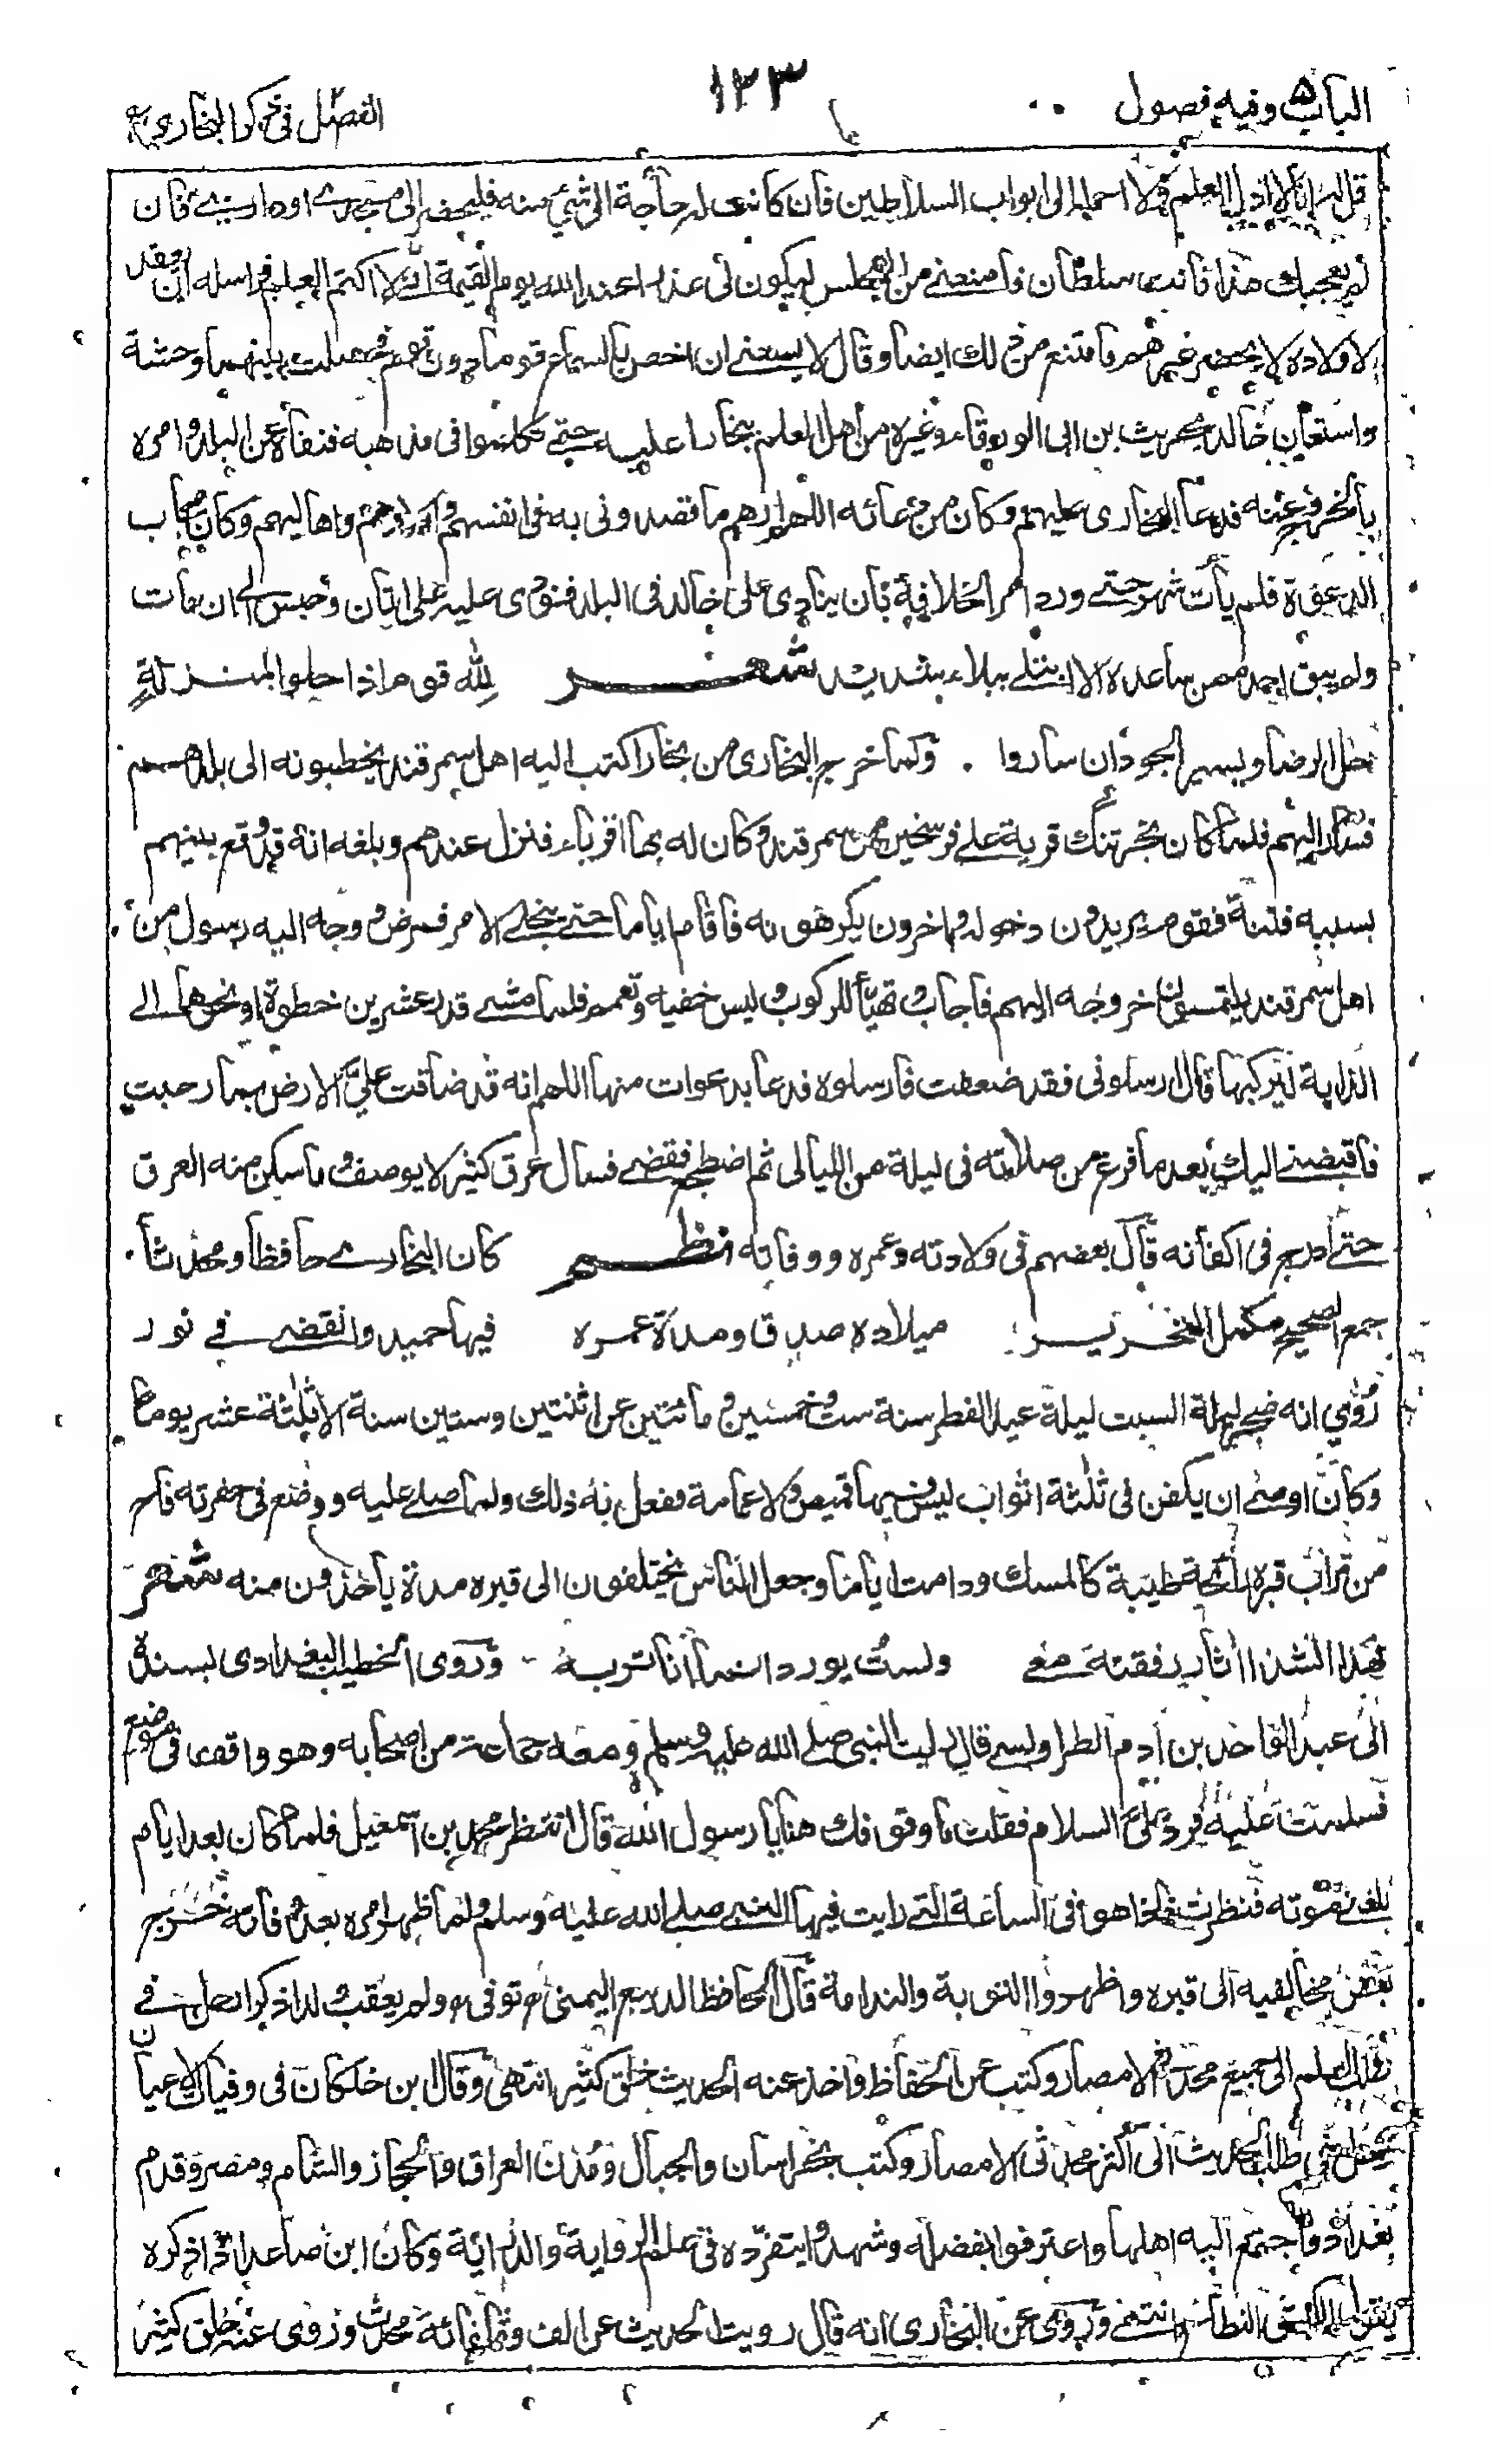 الباب ٥ وفيه فصول
١٢٣
الفصل ٢ في ذكر البخاري
قل له انا لا اذل العلم ولا احمله الى ابواب السلاطين فان كانت له حاجة الى شئ منه فليحضر الى مسجدي او داري فان
لم يعجبك هذا فانت سلطان فامنعني من المجلس ليكون لي عذر عند الله يوم القيمة اني لا اكتم العلم فراسله ان يعقد
لاولاده لا يحضر غيرهم فامتنع من ذلك ايضا وقال لا يسعني ان اخص بالسماع قوما دون قوم فحصلت بينهما وحشة
واستعان خالد بحريث بن ابي الورقاء وغيره من اهل العلم ببخارا عليه حتى تكلموا في مذهبه فنفاه عن البلد وامره
بالخروج عنه فدعا البخاري عليهم وكان من دعائه اللهم ارهم ما قصدوني به في انفسهم واولادهم واهاليهم وكان مجاب
الدعوة فلم يأت شهر حتى ورد امر الخلافة بان ينادى على خالد في البلد فنودى عليه على اتان وحبس الى ان مات
ولم يبق احد ممن ساعده الا ابتلى ببلاء شديد شعر لله قوم اذا حلوا بمنزلة
حل الرضا ويسير الجود ان ساروا . ولما خرج البخاري من بخارا كتب اليه اهل سمرقند يخطبونه الى بلدهم
فسار اليهم فلما كان بخرتنگ قرية على فرسخين من سمرقند وكان له بها اقرباء فنزل عندهم وبلغه انه قد وقع بينهم
بسببه فتنة فقوم يريدون دخوله واخرون يكرهونه فاقام اياما حتى ينجلي الامر فمرض ووجه اليه رسول من
اهل سمرقند يلتمسون خروجه اليهم فاجاب وتهيأ للركوب ولبس خفيه وتعمم فلما مشى قدر عشرين خطوة او نحوها الى
الدابة ليركبها قال ارسلوني فقد ضعفت فارسلوه فدعا بدعوات منها اللهم انه قد ضاقت علي الارض بما رحبت
فاقبضني اليك بعد ما فرغ من صلاته في ليلة من الليالي ثم اضطجع فقضى فسال عرق كثير لا يوصف وما سكن منه العرق
حتى ادرج في اكفانه قال بعضهم في ولادته وعمره ووفاته نظم كان البخاري حافظا ومحدثا
جمع الصحيح مكمل التحرير ميلاده صدق ومدة عمره فيها حميد وانقضى في نور
روي انه ليلة السبت ليلة عيد الفطر سنة ست وخمسين ومائتين عن اثنتين وستين سنة الا ثلثة عشر يوما
وكان اوصى ان يكفن في ثلثة اثواب ليس فيها قميص ولا عمامة ففعل به ذلك ولما صلى عليه ووضع في حفرته فاح
من تراب قبره رائحة طيبة كالمسك ودامت اياما وجعل الناس يختلفون الى قبره مدة ياخذون منه شعر
بهذا الشذا اثار رفقته معي ولست بورد انما انا تربه - وروى الخطيب البغدادي بسنده
الى عبد الواحد بن ادم الطراويسي قال رايت النبي صلى الله عليه وسلم ومعه جماعة من اصحابه وهو واقف في موضع
فسلمت عليه فرد علي السلام فقلت ما وقوفك هنا يا رسول الله قال انتظر محمد بن اسمعيل فلما كان بعد ايام
بلغني موته فنظرت فاذا هو في الساعة التي رايت فيها النبي صلى الله عليه وسلم ولما ظهر امره بعد وفاته خرج
بعض مخالفيه الى قبره واظهروا التوبة والندامة قال الحافظ الديبع اليمني توفي ولم يعقب ولدا ذكرا رحل في
طلب العلم الى جميع محدثي الامصار وكتب عن الحفاظ واخذ عنه الحديث خلق كثير انتهى وقال بن خلكان في وفيات الاعيان
رحل في طلب الحديث الى اكثر محدثي الامصار وكتب بخراسان والجبال ومدن العراق والحجاز والشام ومصر وقدم
بغداد واجتمع اليه اهلها واعترفوا بفضله وشهدوا بتفرده في علم الرواية والدراية وكان ابن صاعد اذا ذكره
يقول الكبش النطاح انتهى وروى عن البخاري انه قال رويت الحديث عن الف وثمانمائة محدث وروى عنه خلق كثير